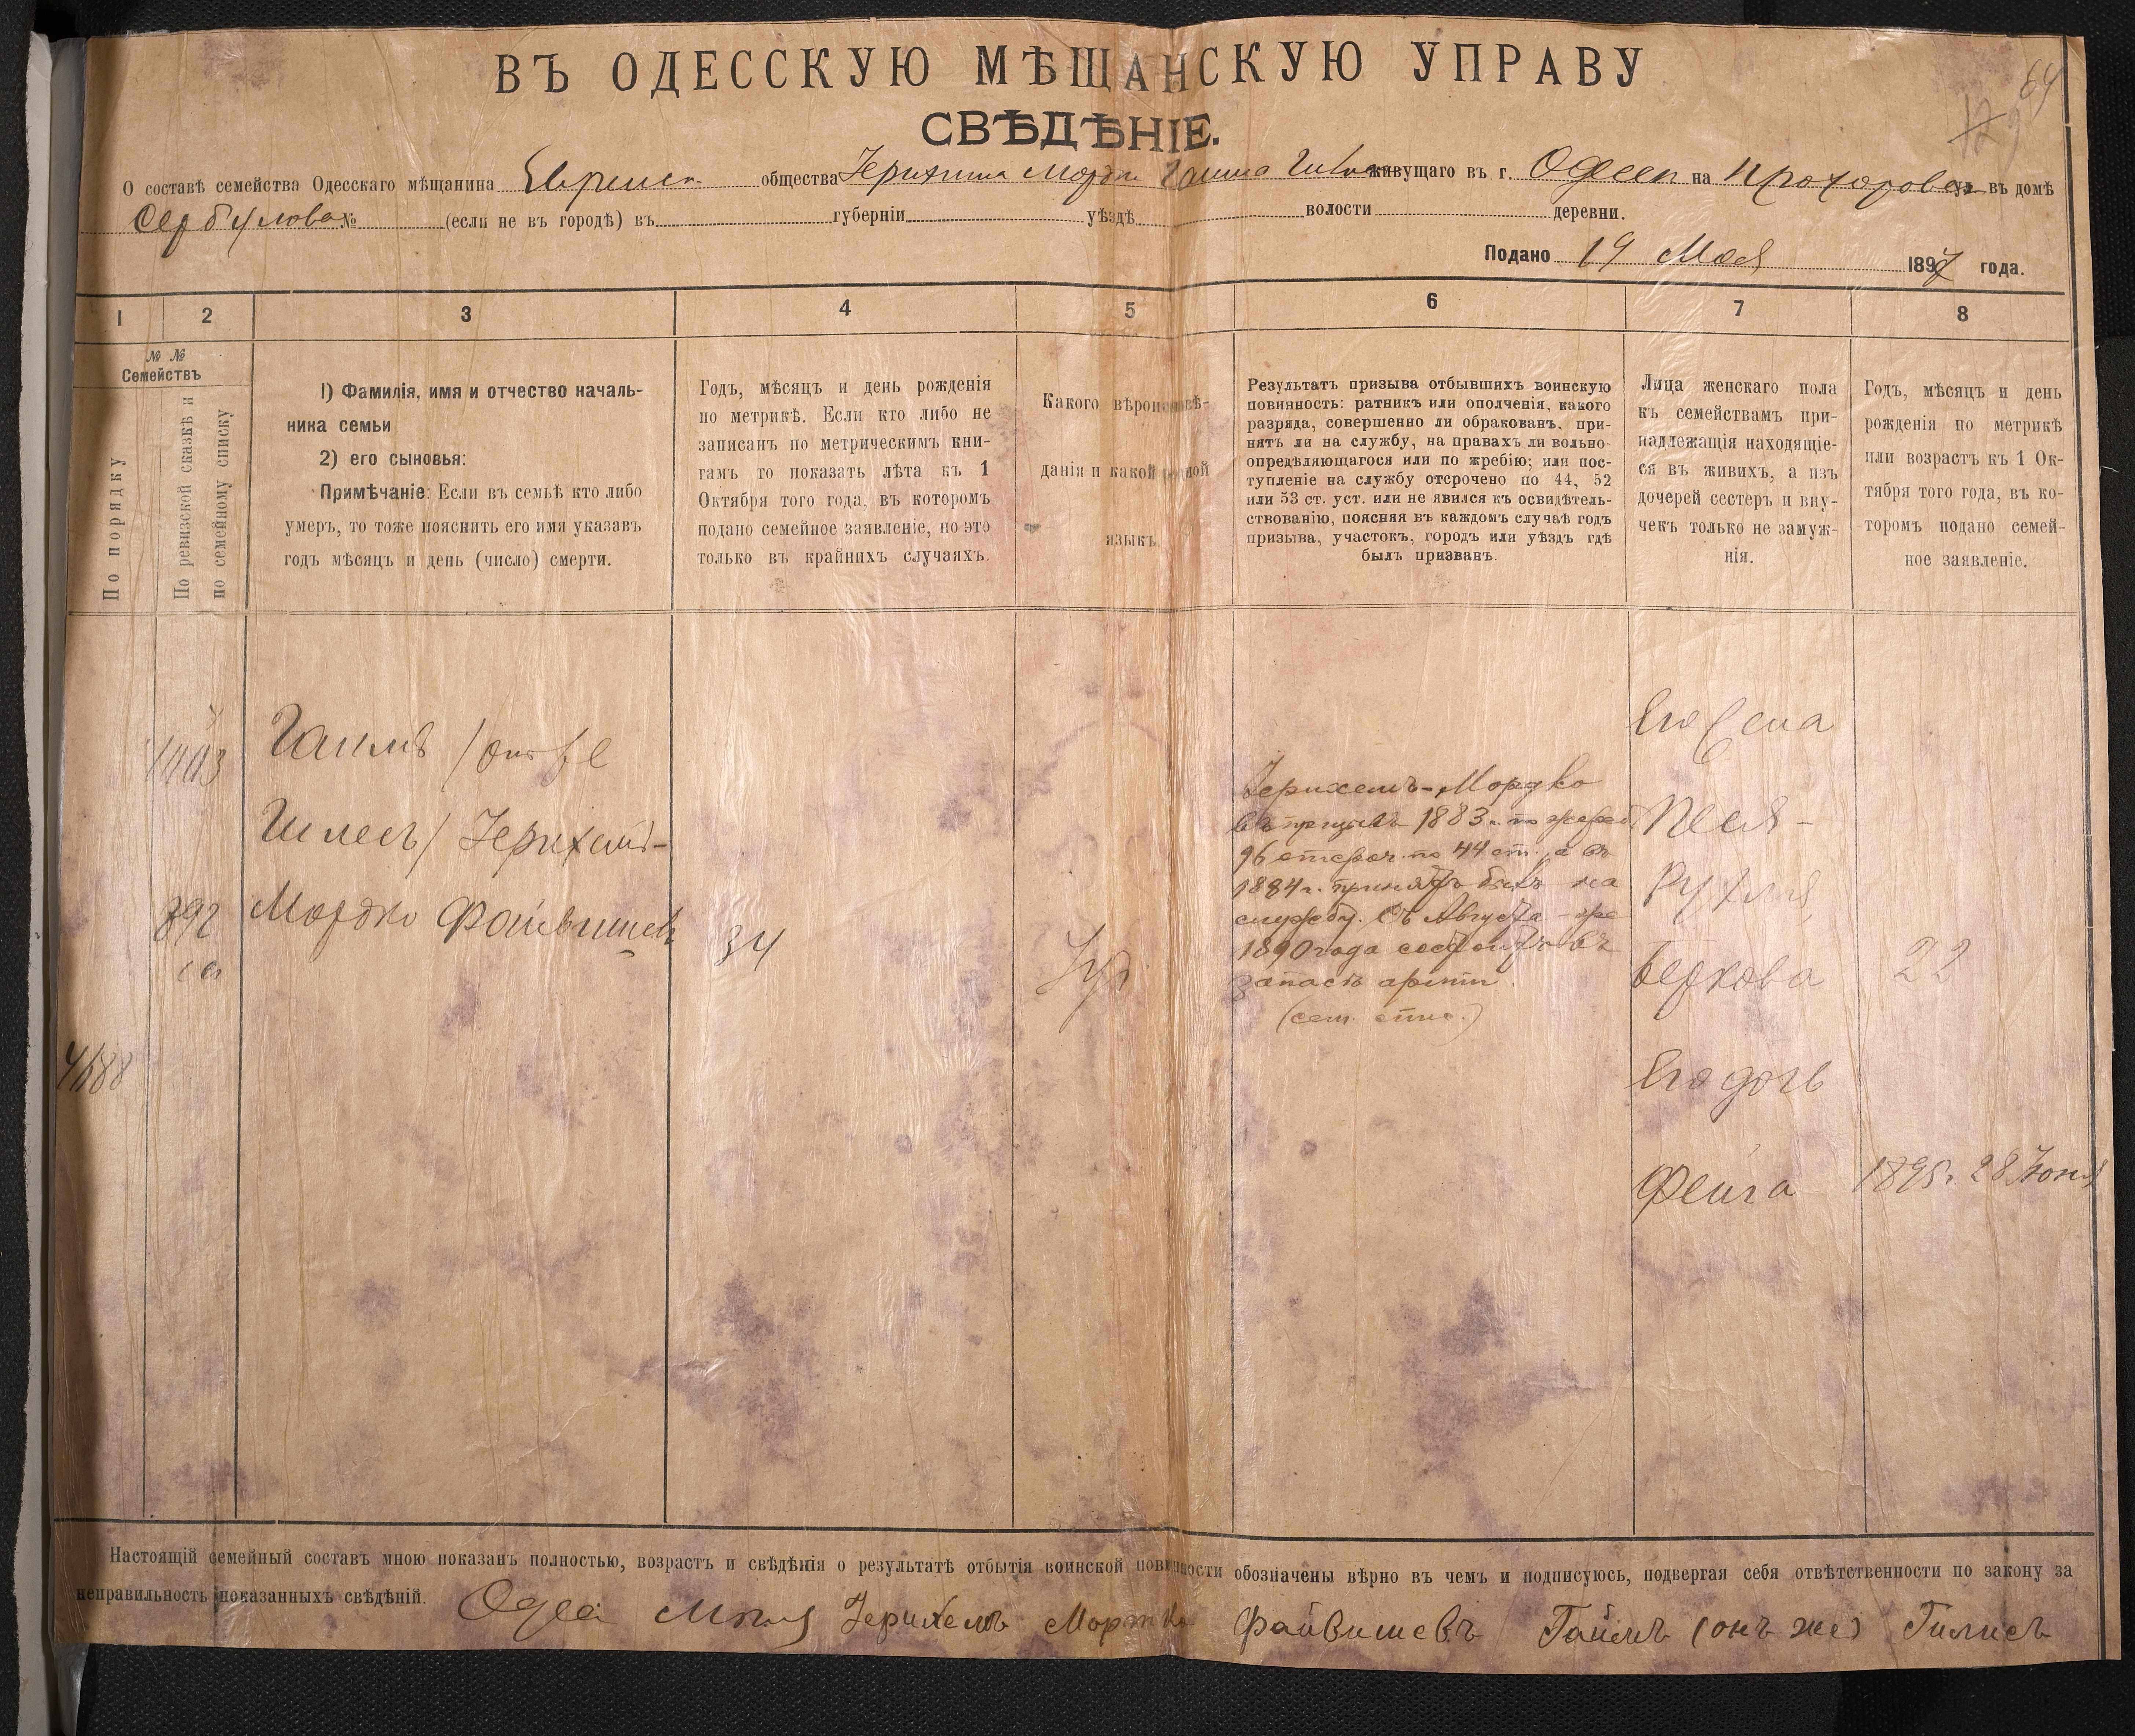 ВЪ ОДЕССКУЮ МѢЩАНСКУЮ УПРАВУ
64
СВѢДѢНІЕ.
О составѣ семейства Одесскаго мѣщанина Еврейск. общества Іерихима Мордки Гаима живущаго въ г. Одессѣ на Прохоровск. ул. въ домѣ
Сербулова № (если не въ городѣ) въ губерніи уѣздѣ волости деревни.
Подано 19 Мая 1897 года.
1 2 3 4 5 6 7 8
№ №
Семействъ
По порядку
По ревизской сказкѣ и
по семейному списку
1) Фамилія, имя и отчество началь-
ника семьи
2) его сыновья:
Примѣчаніе: Если въ семьѣ кто либо
умеръ, то тоже пояснить его имя указавъ
годъ мѣсяцъ и день (число) смерти.
Годъ, мѣсяцъ и день рожденія
по метрикѣ. Если кто либо не
записанъ по метрическимъ кни-
гамъ то показать лѣта къ 1
Октября того года, въ которомъ
подано семейное заявленіе, но это
только въ крайнихъ случаяхъ.
Какого вѣроисповѣ-
данія и какой родной
языкъ
Результатъ призыва отбывшихъ воинскую
повинность: ратникъ или ополченія, какого
разряда, совершенно ли обракованъ, при-
нятъ ли на службу, на правахъ ли вольно-
опредѣляющагося или по жребію; или пос-
тупленіе на службу отсрочено по 44, 52
или 53 ст. уст. или не явился къ освидѣтель-
ствованію, поясняя въ каждомъ случаѣ годъ
призыва, участокъ, городъ или уѣздъ гдѣ
былъ призванъ.
Лица женскаго пола
къ семействамъ при-
надлежащія находящіе-
ся въ живихъ, а изъ
дочерей сестеръ и вну-
чекъ только не замуж-
нія.
Годъ, мѣсяцъ и день
рожденія по метрикѣ
или возрастъ къ 1 Ок-
тября того года, въ ко-
торомъ подано семей-
ное заявленіе.
Гаимъ (онъ же
Гилесъ) Іерихемъ-
Мордко Файвишевъ
892
34
Іуд
Іерихемъ-Мордко
въ призывъ 1883 г. по жреб.
96 отсроч. по 44 ст., а въ
1884 г. принятъ былъ на
службу. Съ Августа
1890 года состоитъ въ
запасѣ арміи.
Его жена
Песя-
Рухля
Беркова 22
Его дочь
Фейга 1895 г. 28 Іюня
Настоящій семейный составъ мною показанъ полностью, возрастъ и свѣдѣнія о результатѣ отбытія воинской повинности обозначены вѣрно въ чемъ и подписуюсь, подвергая себя отвѣтственности по закону за
неправильность показанныхъ свѣдѣній. Іерихемъ Мортко Файвишевъ Гаймъ (онъ же) Гилисъ